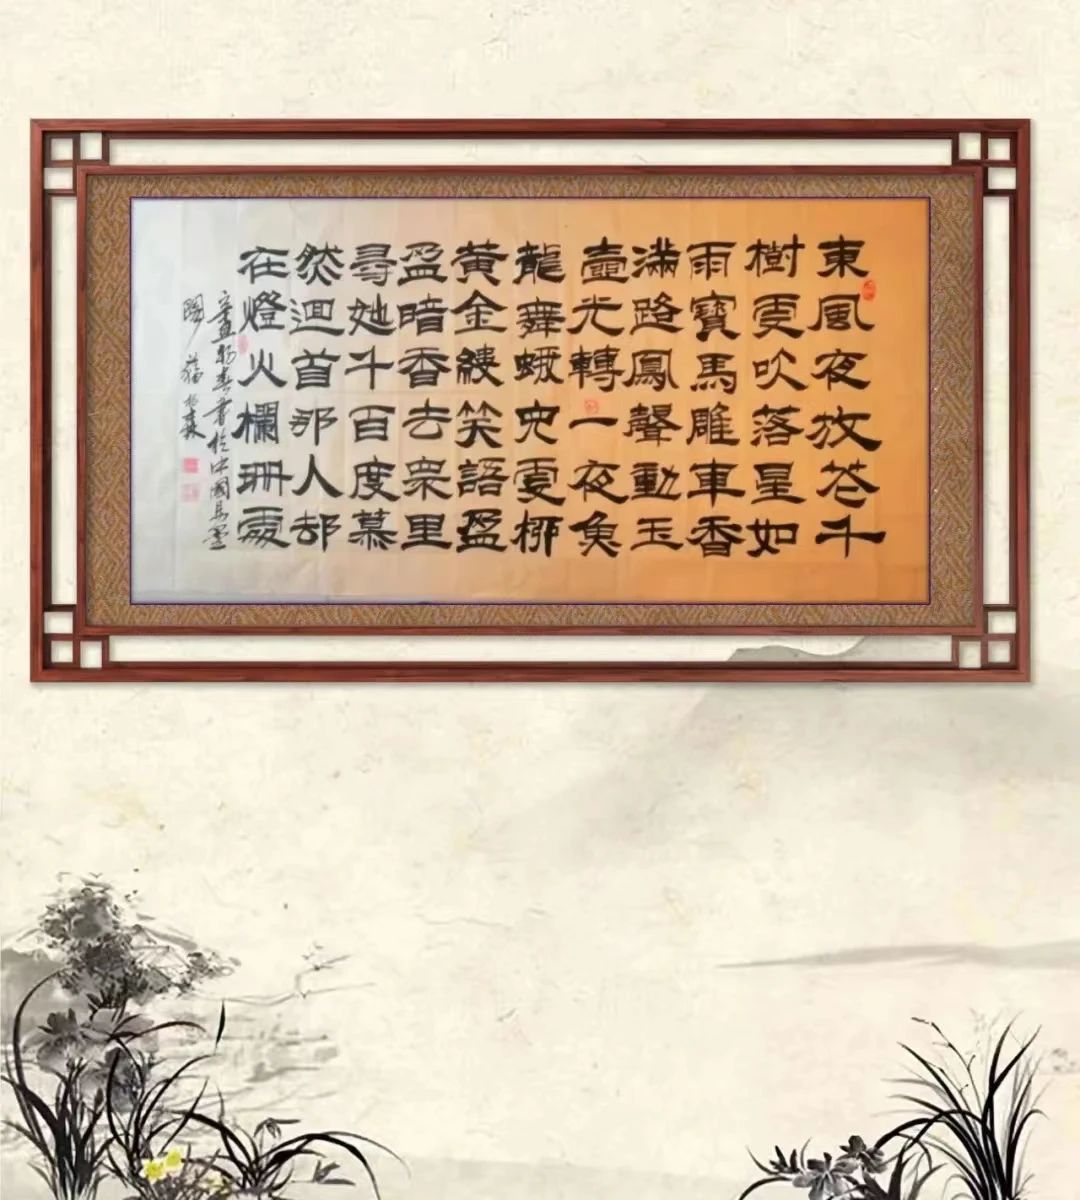 東風夜放花千
樹更吹落星如
雨寶馬雕車香
滿路鳳聲動玉
壺光轉一夜魚
龍舞蛾兒雪柳
黄金縷笑語盈
盈暗香去衆里
尋她千百度慕
然迴首那人却
在燈火欄珊處
辛丑初春書於中國